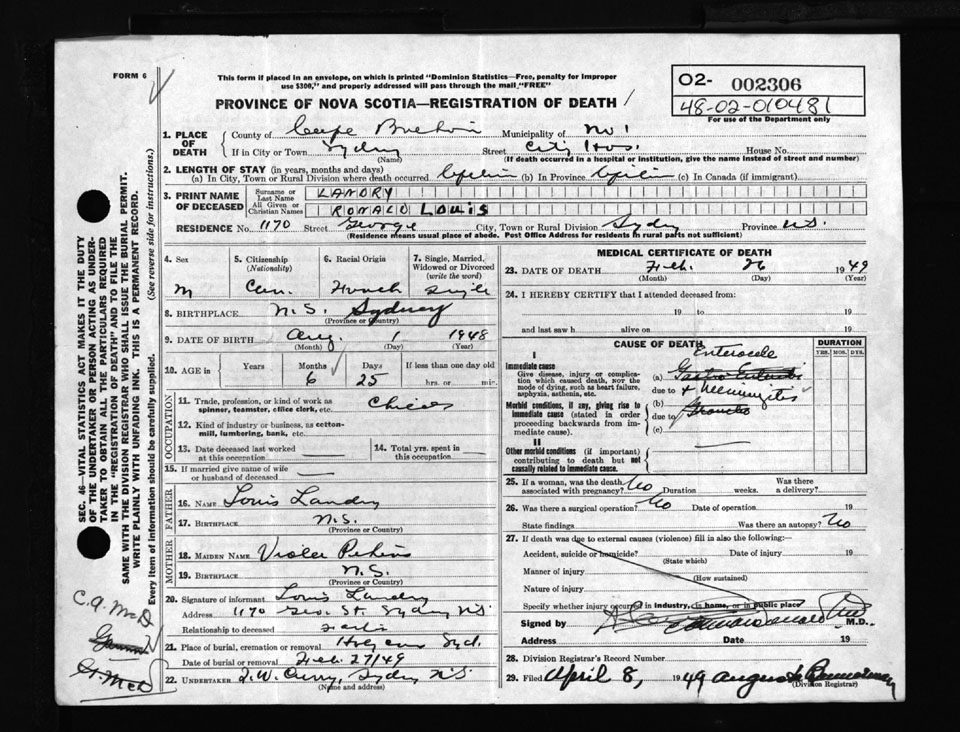 FORM 6
This form if placed in an envelope, on which is printed "Dominion Statistics—Free, penalty for improper
use $300," and properly addressed will pass through the mail "FREE"
02- 002306
48-02-010481
For use of the Department only
PROVINCE OF NOVA SCOTIA—REGISTRATION OF DEATH
1. PLACE OF DEATH County of Cape Breton Municipality of No 1
If in City or Town Sydney Street City Hos. House No.
(Name) (If death occurred in a hospital or institution, give the name instead of street and number)
2. LENGTH OF STAY (in years, months and days)
(a) In City, Town or Rural Division where death occurred (b) In Province (c) In Canada (if immigrant)
3. PRINT NAME OF DECEASED Surname or Last Name LANDRY
All Given or Christian Names RONALD LOUIS
RESIDENCE No. 1170 Street George City, Town or Rural Division Sydney Province N.S.
(Residence means usual place of abode. Post Office Address for residents in rural parts not sufficient)
4. Sex 5. Citizenship (Nationality) 6. Racial Origin 7. Single, Married, Widowed or Divorced (write the word)
M Can. French Single
8. BIRTHPLACE N.S. Sydney
(Province or Country)
9. DATE OF BIRTH Aug. 1 1948
(Month) (Day) (Year)
10. AGE in Years Months Days If less than one day old
6 25 hrs. or min.
OCCUPATION
11. Trade, profession or kind of work as spinner, teamster, office clerk, etc. Child
12. Kind of industry or business, as cotton-mill, lumbering, bank, etc.
13. Date deceased last worked at this occupation 14. Total yrs. spent in this occupation
15. If married give name of wife or husband of deceased
FATHER
16. NAME Louis Landry
17. BIRTHPLACE N.S.
(Province or Country)
MOTHER
18. MAIDEN NAME Violet
19. BIRTHPLACE N.S.
(Province or Country)
20. Signature of informant Louis Landry
Address 1170 Geo. St. Sydney N.S.
Relationship to deceased Father
21. Place of burial, cremation or removal Syd.
Date of burial or removal Feb. 27/49
22. UNDERTAKER Curry, Sydney N.S.
(Name and address)
MEDICAL CERTIFICATE OF DEATH
23. DATE OF DEATH Feb. 26 1949
(Month) (Day) (Year)
24. I HEREBY CERTIFY that I attended deceased from:
19 to 19
and last saw h alive on 19
CAUSE OF DEATH DURATION
YRS. MOS. DYS.
I
Immediate cause
Give disease, injury or complication which caused death, NOT the mode of dying, such as heart failure, asphyxia, asthenia, etc.
(a)
due to & Meningitis
Morbid conditions, if any, giving rise to immediate cause (stated in order proceeding backwards from immediate cause).
(b)
due to
(c)
II
Other morbid conditions (if important) contributing to death but not causally related to immediate cause.
25. If a woman, was the death associated with pregnancy? No Duration weeks. Was there a delivery?
26. Was there a surgical operation? No Date of operation 19
State findings Was there an autopsy? No
27. If death was due to external causes (violence) fill in also the following:—
Accident, suicide or homicide? Date of injury 19
(State which)
Manner of injury
(How sustained)
Nature of injury
Specify whether injury occurred in industry, in home, or in public place
Signed by M.D.
Address Date 19
28. Division Registrar's Record Number
29. Filed April 8, 1949
(Division Registrar)
SEC. 46—VITAL STATISTICS ACT MAKES IT THE DUTY
OF THE UNDERTAKER OR PERSON ACTING AS UNDER-
TAKER TO OBTAIN ALL THE PARTICULARS REQUIRED
IN THE "REGISTRATION OF DEATH" AND TO FILE THE
SAME WITH THE DIVISION REGISTRAR WHO SHALL ISSUE THE BURIAL PERMIT.
WRITE PLAINLY WITH UNFADING INK. THIS IS A PERMANENT RECORD.
Every item of information should be carefully supplied. (See reverse side for instructions.)